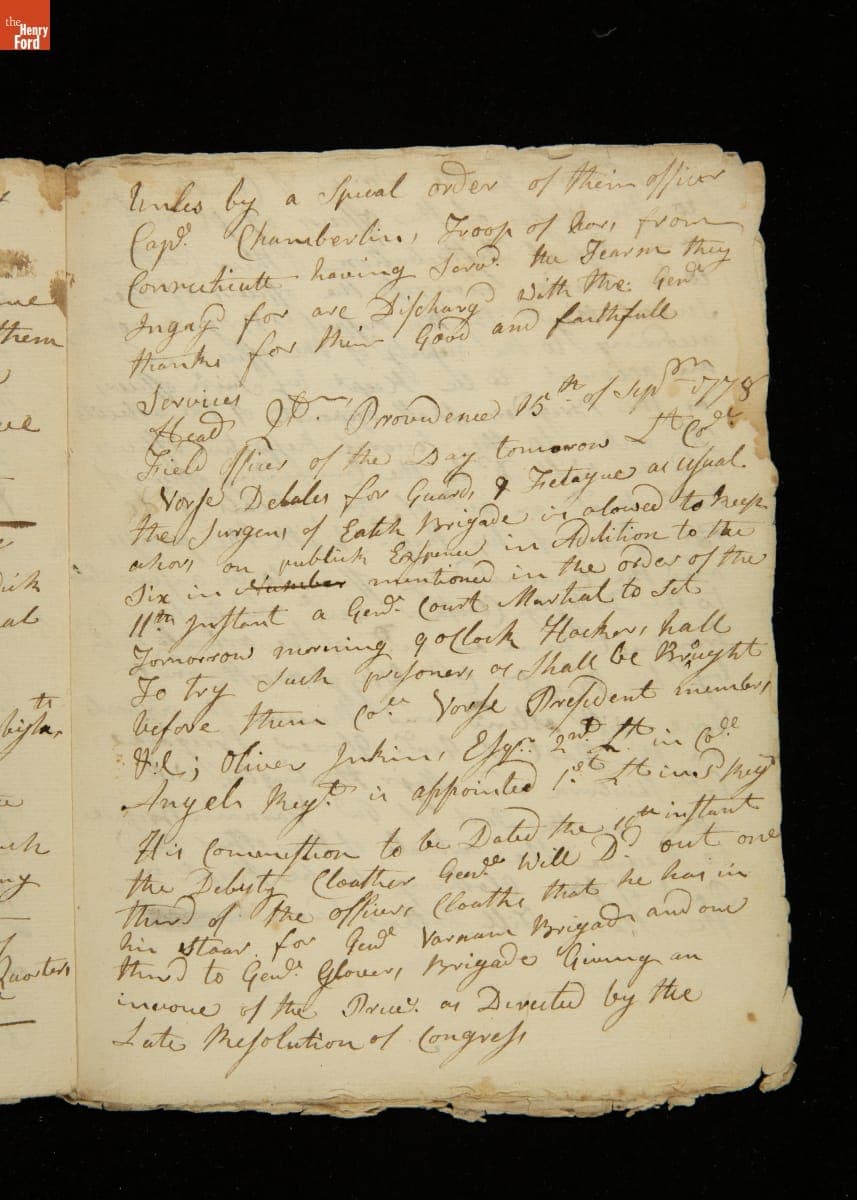 the
Henry
Ford
Unles by a Speual order of theim officer
Capt. Chamberlins, Troop of hors, from
Connecticutt having Servd. the Tearm they
Ingagd for are Dischargd with the Genls
thanks for their Good and faithfull
Services
Head Qtrs. Providence 15th of Sepm 1778
Field officer of the Day tomorow Lt Coll
Vorse Detales for Guards & Fetague as usual
the Surgens of Eatch Brigade is alowed to keep
ahors on publick Expence in Addition to the
Six in Number mentioned in the order of the
11th Instant a Genl. Court Martial to Set
Tomorrow morning 9 oClock Hackers, hall
To try Such prisoners as Shall be Braught
before them Coll. Vorse President members
&c; Oliver Jnkins, Esqr. 2nd Lt in Coll
Angels Regt. is appointed 1st Lt in sd Regt
His Commestion to be Dated the instant
the Debuty Cloather Genll Will D. out one
third of the officers Cloaths that he has in
his Staor for Genl Varnum Brigade and one
third to Genl. Glovers, Brigade Giving an
invone of the Prices. as Directed by the
Late Resolution of Congress
them
Quarters